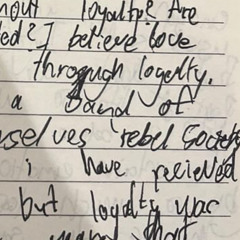 hout loyalty? Are
ed?] believe love
through loyalty.
a band of
selves rebel society
i have recieved
but loyalty was